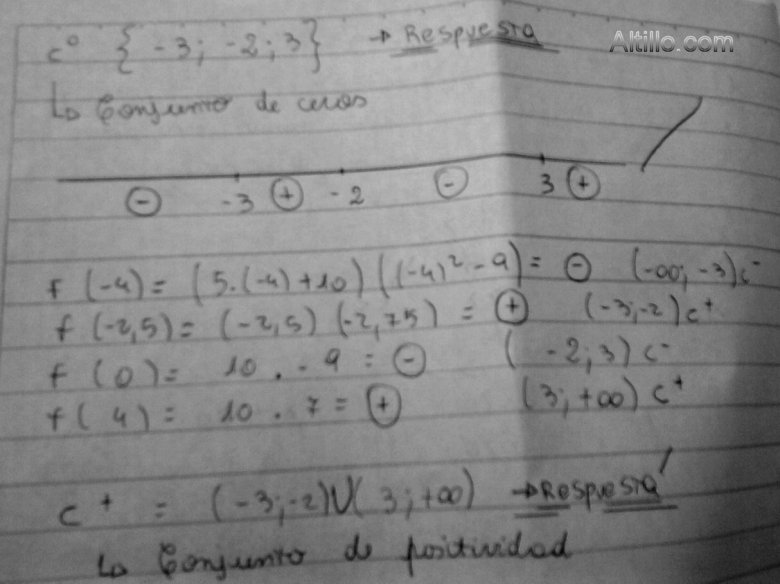 C° { -3; -2; 3} → Respuesta
Altillo.com
↳ Conjunto de ceros
⊖ -3 ⊕ -2 ⊖ 3 ⊕
f (-4) = (5.(-4)+10) ((-4)² - 9) = ⊖ (-∞; -3) C⁻
f (-2,5) = (-2,5) (-2,75) = ⊕ (-3;-2) C⁺
f (0) = 10 . -9 = ⊖ ( -2; 3) C⁻
f ( 4) = 10 . 7 = ⊕ (3; +∞) C⁺
C⁺ = (-3;-2)U( 3; +∞) → Respuesta
↳ Conjunto de positividad